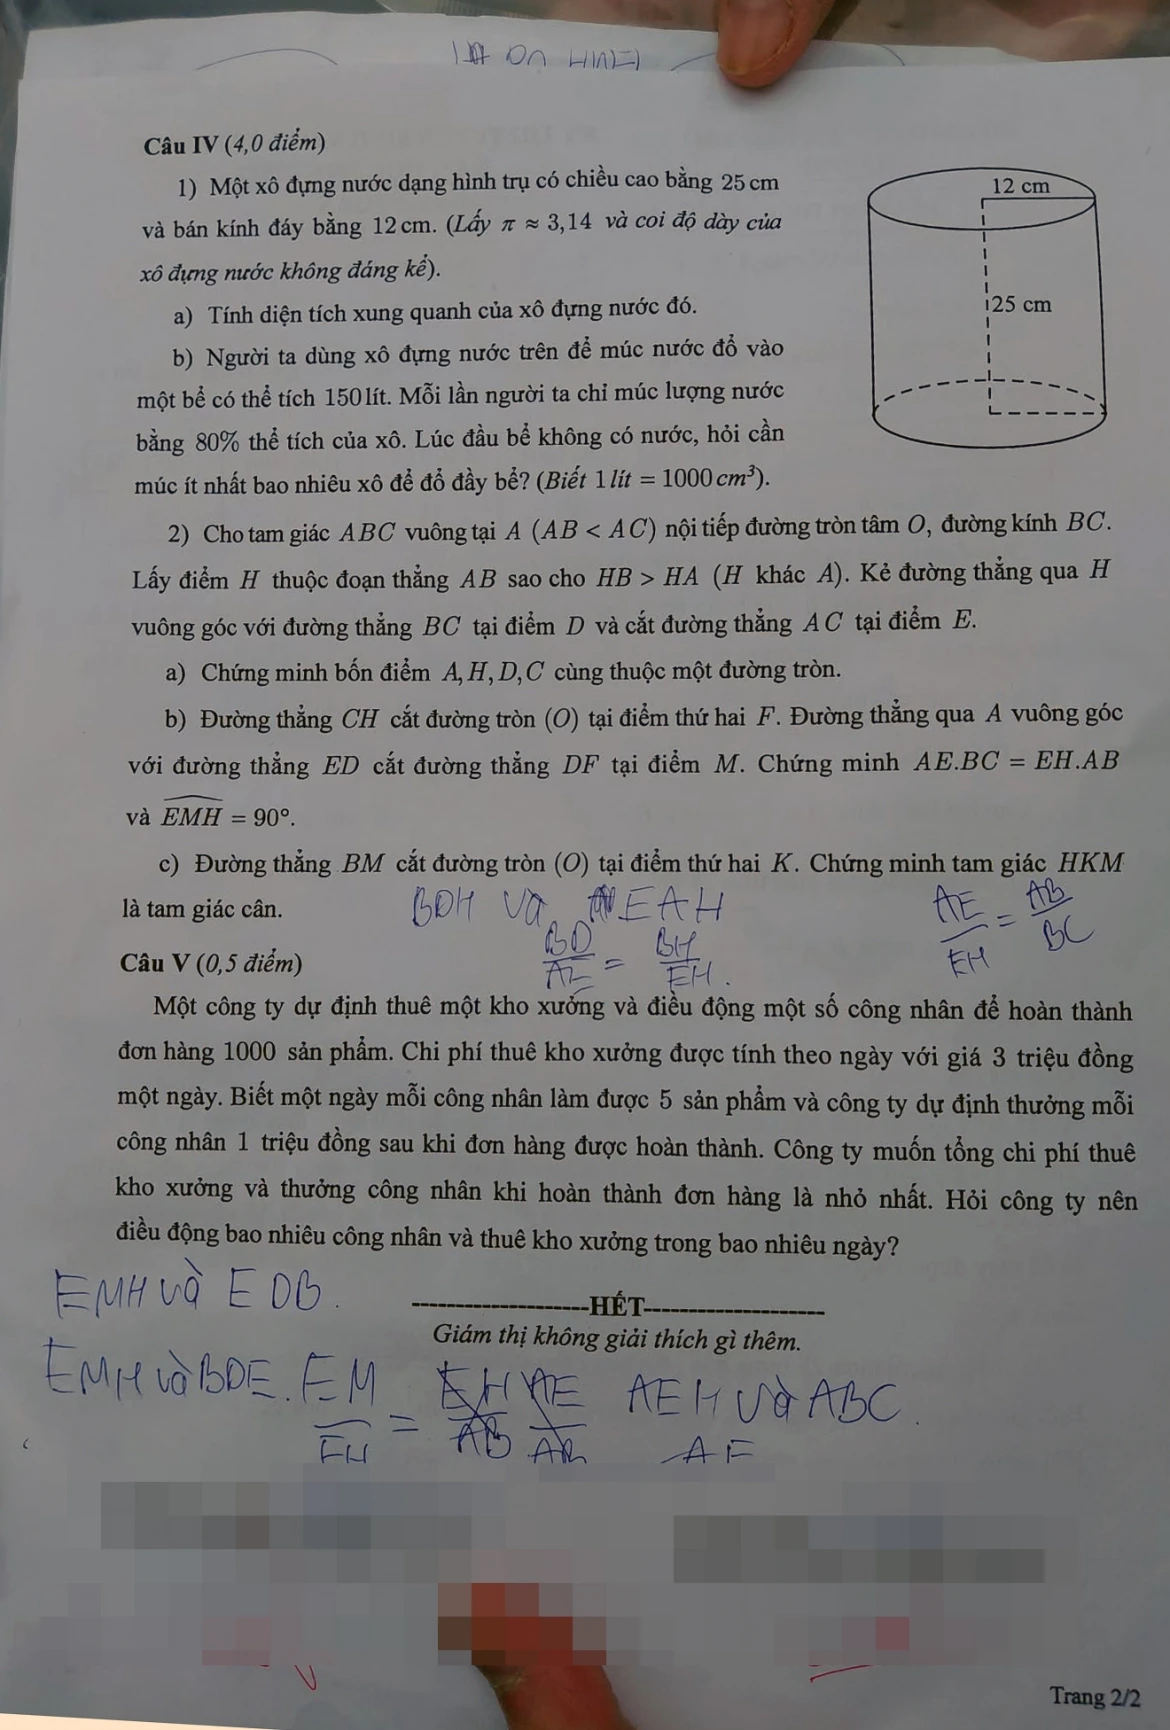 Câu IV (4,0 điểm)
1) Một xô đựng nước dạng hình trụ có chiều cao bằng 25 cm
và bán kính đáy bằng 12 cm. (Lấy π ≈ 3,14 và coi độ dày của
xô đựng nước không đáng kể).
12 cm
25 cm
a) Tính diện tích xung quanh của xô đựng nước đó.
b) Người ta dùng xô đựng nước trên để múc nước đổ vào
một bể có thể tích 150 lít. Mỗi lần người ta chỉ múc lượng nước
bằng 80% thể tích của xô. Lúc đầu bể không có nước, hỏi cần
múc ít nhất bao nhiêu xô để đổ đầy bể? (Biết 1 lít = 1000 cm³).
2) Cho tam giác ABC vuông tại A (AB < AC) nội tiếp đường tròn tâm O, đường kính BC.
Lấy điểm H thuộc đoạn thẳng AB sao cho HB > HA (H khác A). Kẻ đường thẳng qua H
vuông góc với đường thẳng BC tại điểm D và cắt đường thẳng AC tại điểm E.
a) Chứng minh bốn điểm A, H, D, C cùng thuộc một đường tròn.
b) Đường thẳng CH cắt đường tròn (O) tại điểm thứ hai F. Đường thẳng qua A vuông góc
với đường thẳng ED cắt đường thẳng DF tại điểm M. Chứng minh AE.BC = EH.AB
và \widehat{EMH} = 90°.
c) Đường thẳng BM cắt đường tròn (O) tại điểm thứ hai K. Chứng minh tam giác HKM
là tam giác cân.
BDH và EAH
BD/AE = BH/EH.
AE/EH = AB/BC
Câu V (0,5 điểm)
Một công ty dự định thuê một kho xưởng và điều động một số công nhân để hoàn thành
đơn hàng 1000 sản phẩm. Chi phí thuê kho xưởng được tính theo ngày với giá 3 triệu đồng
một ngày. Biết một ngày mỗi công nhân làm được 5 sản phẩm và công ty dự định thưởng mỗi
công nhân 1 triệu đồng sau khi đơn hàng được hoàn thành. Công ty muốn tổng chi phí thuê
kho xưởng và thưởng công nhân khi hoàn thành đơn hàng là nhỏ nhất. Hỏi công ty nên
điều động bao nhiêu công nhân và thuê kho xưởng trong bao nhiêu ngày?
EMH và EDB.
HẾT
Giám thị không giải thích gì thêm.
EMH và BDE. EM/EH = EH/AB AE/AB AEH và ABC.
AE
Trang 2/2